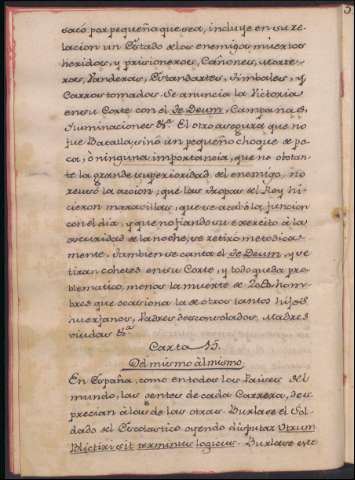 sacó por pequeña que sea, incluye en su re-
lacion un Estado de los enemigos muertos
heridos, y prisioneros, Cañones, Morte-
ros, Vanderas, Estandartes, Timbales, y
Carros tomados. Se anuncia la Victoria
en su Corte con el Te Deum, Campanas,
Iluminaciones &a. El otro asegura que no
fue Batalla, sino un pequeño choque de po-
ca, ò ninguna importancia, que no obstan-
te la grande superioridad del enemigo, no
reusó la accion; que las Tropas del Rey hi-
cieron maravillas, que se acabó la funcion
con el dia, y que no fiando su exercito à la
oscuridad de la noche, se retiró metodica-
mente. Tambien se canta el Te Deum, y se
tiran cohetes en su Corte, y todo queda pro-
blematico, menos la muerte de 20 hom-
bres que ocasiona la de otros tantos hijos
huerfanos, Padres desconsolados, Madres
viudas &a
Carta 15.
Del mismo àl mismo.
En España, como en todos los Paises del
mundo, las gentes de cada Carrera, des-
precian à los de las otras. Burlase el Sol-
dado del Escolastico oyendo disputar Utrum
blictiri sit terminus logicus. Burlase este